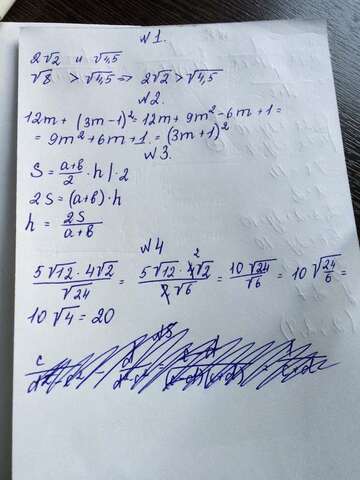 №1.
2√2 и √4,5
√8 > √4,5 => 2√2 > √4,5
№2.
12m + (3m-1)² = 12m + 9m² - 6m + 1 =
= 9m² + 6m + 1 = (3m+1)²
№3.
S = (a+b)/2 · h | · 2
2S = (a+b) · h
h = 2S/(a+b)
№4
5√12 · 4√2 / √24 = 5√12 · 4√2 / 2√6 = 10√24 / √6 = 10√(24/6) =
10√4 = 20